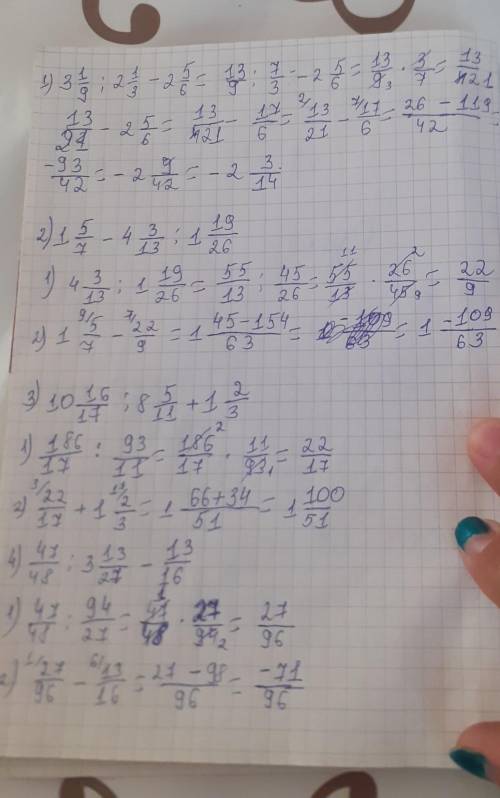 1) 3 1/9 : 2 1/3 - 2 5/6 = 13/9 : 7/3 - 2 5/6 = 13/9 3 · 3/7 = 13/21
13/21 - 2 5/6 = 13/21 - 17/6 = 2/ 13/21 - 7/ 17/6 = 26 - 119/42 =
-93/42 = -2 9/42 = -2 3/14
2) 1 5/7 - 4 3/13 : 1 19/26
1) 4 3/13 : 1 19/26 = 55/13 : 45/26 = 55 11/13 · 26 2/45 9 = 22/9
2) 1 9/ 5/7 - 7/ 22/9 = 1 45-154/63 = = 1 -109/63
3) 10 16/17 : 8 5/11 + 1 2/3
1) 186/17 : 93/11 = 186 2/17 · 11/93 1 = 22/17
2) 3/ 22/17 + 1 2/3 = 1 66+34/51 = 1 100/51
4) 47/48 : 3 13/27 - 13/16
1) 47/48 : 94/27 = 47 1/48 · 27/94 2 = 27/96
2) 1/ 27/96 - 6/ 13/16 = 27 - 98/96 = -71/96